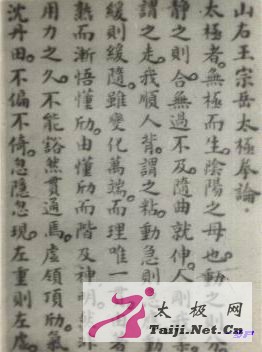 山右王宗岳太極拳論。
太極者。無極而生。陰陽之母也。動之則分
靜之則合。無過不及。隨曲就伸。人剛
謂之走。我順人背。謂之粘。動急則
緩則緩隨。雖變化萬端。而理唯一
熟而漸悟懂劤。由懂劤而階及神明。然非
用力之久。不能豁然貫通焉。虛領頂劤。氣
沈丹田。不偏不倚。忽隱忽現。左重則左虛。
太极网